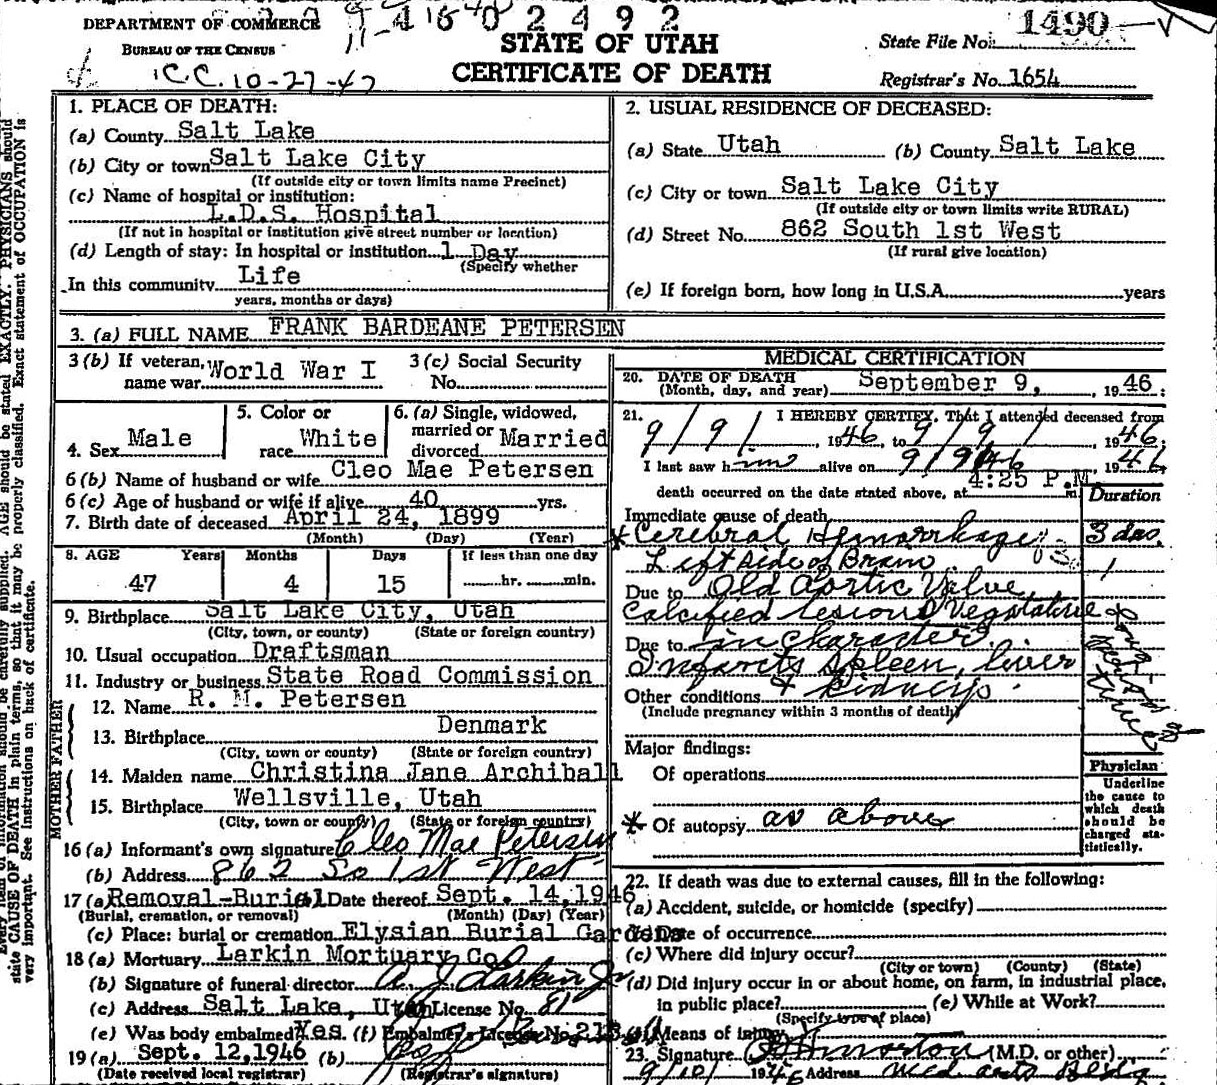 DEPARTMENT OF COMMERCE
BUREAU OF THE CENSUS
4 16 0 2 4 9 2
STATE OF UTAH
CERTIFICATE OF DEATH
State File No. 1490
Registrar's No. 1654
C.C. 10-27-47
1. PLACE OF DEATH:
(a) County Salt Lake
(b) City or town Salt Lake City
(If outside city or town limits name Precinct)
(c) Name of hospital or institution:
L.D.S. Hospital
(If not in hospital or institution give street number or location)
(d) Length of stay: In hospital or institution 1 Day
(Specify whether
In this community Life
years, months or days)
2. USUAL RESIDENCE OF DECEASED:
(a) State Utah (b) County Salt Lake
(c) City or town Salt Lake City
(If outside city or town limits write RURAL)
(d) Street No. 862 South 1st West
(If rural give location)
(e) If foreign born, how long in U.S.A. years
3. (a) FULL NAME FRANK BARDEANE PETERSEN
3 (b) If veteran, name war World War I
3 (c) Social Security No.
4. Sex Male
5. Color or race White
6. (a) Single, widowed, married or divorced Married
6 (b) Name of husband or wife Cleo Mae Petersen
6 (c) Age of husband or wife if alive 40 yrs.
7. Birth date of deceased April 24, 1899
(Month) (Day) (Year)
8. AGE Years Months Days If less than one day
47 4 15 hr. min.
9. Birthplace Salt Lake City, Utah
(City, town, or county) (State or foreign country)
10. Usual occupation Draftsman
11. Industry or business State Road Commission
FATHER
12. Name R. M. Petersen
13. Birthplace Denmark
(City, town or county) (State or foreign country)
MOTHER
14. Maiden name Christina Jane Archiball
15. Birthplace Wellsville, Utah
(City, town or county) (State or foreign country)
16 (a) Informant's own signature Cleo Mae Petersen
(b) Address 862 So 1st West
17 (a) Removal-Burial (b) Date thereof Sept. 14, 1946
(Burial, cremation, or removal) (Month) (Day) (Year)
(c) Place: burial or cremation Elysian Burial Gardens
18 (a) Mortuary Larkin Mortuary Co
(b) Signature of funeral director A. J. Larkin Jr
(c) Address Salt Lake, Utah License No. 81
(e) Was body embalmed? Yes. (f) Embalmer's License No.
19 (a) Sept. 12, 1946 (b)
(Date received local registrar) (Registrar's signature)
MEDICAL CERTIFICATION
20. DATE OF DEATH September 9, 1946
(Month, day, and year)
21. I HEREBY CERTIFY, That I attended deceased from
9/9/, 1946, to 9/9/ 1946;
I last saw him alive on 9/9/46, 1946
death occurred on the date stated above, at 4:25 P.M. m
Duration
Immediate cause of death
* Cerebral Hemorrhage 3 das.
Left side of Brain
Due to Old Aortic Valve
Calcified lesions Vegetative
Due to in character.
Infarcts Spleen, liver
Other conditions & kidneys.
(Include pregnancy within 3 months of death)
Major findings:
Of operations
* Of autopsy as above
Physician
Underline the cause to which death should be charged statistically.
22. If death was due to external causes, fill in the following:
(a) Accident, suicide, or homicide (specify)
(b) Date of occurrence
(c) Where did injury occur?
(City or town) (County) (State)
(d) Did injury occur in or about home, on farm, in industrial place, in public place? (e) While at Work?
(Specify type of place)
(f) Means of injury
23. Signature (M.D. or other)
9/10/ 1946 Address Med Arts Bldg
state CAUSE OF DEATH in plain terms, so that it may be properly classified. Exact statement of OCCUPATION is
very important. See instructions on back of certificate.